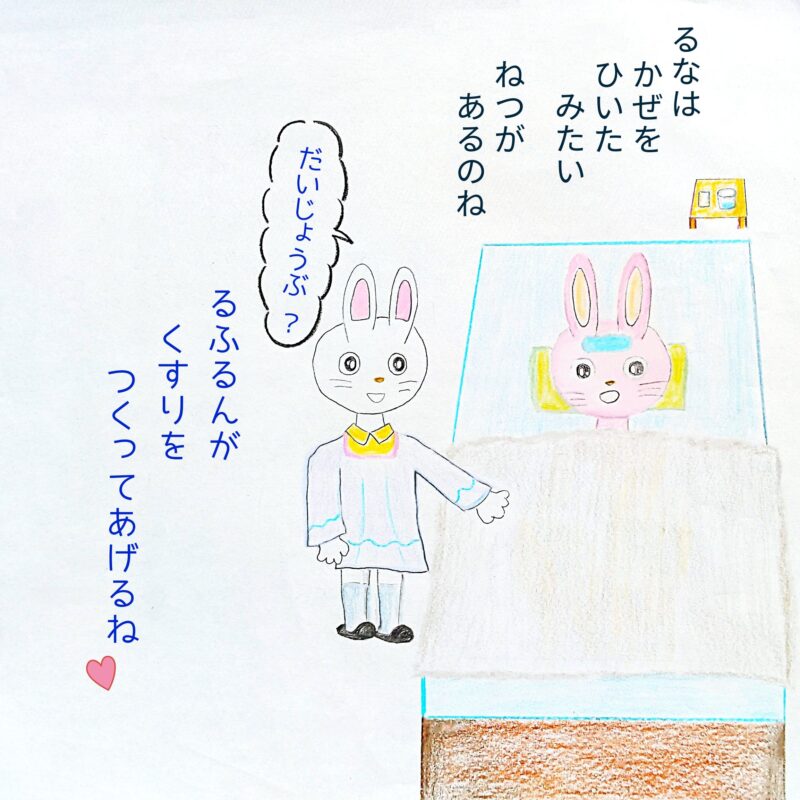 るなは
かぜを
ひいた
みたい
ねつが
あるのね
だいじょうぶ?
るふるんが
くすりを
つくってあげるね